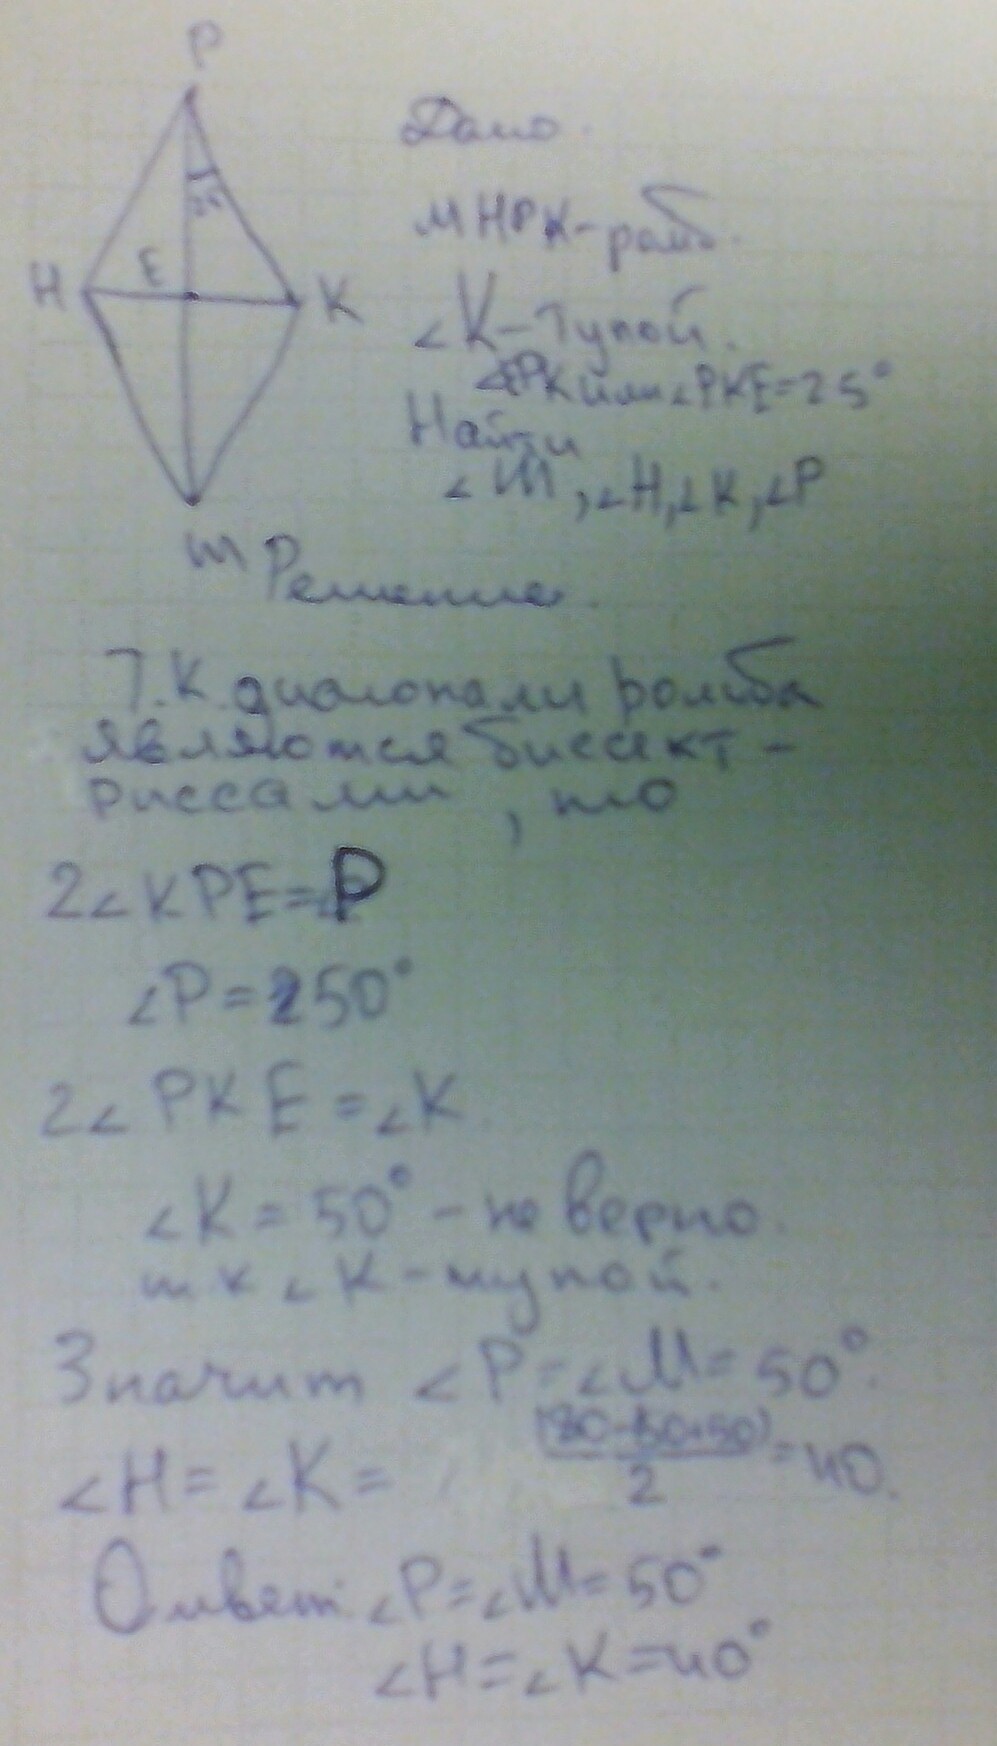 P
Дано.
25
МНРК-ромб.
H E K
∠K-тупой.
∠EPK или ∠PKE=25°
Найти
∠M, ∠H, ∠K, ∠P
m
Решение.
Т.к. диагонали ромба
являются биссект-
риссами, то
2∠KPE=∠P
∠P=50°
2∠PKE=∠K.
∠K=50°-не верно.
т к ∠K-тупой.
Значит ∠P=∠M=50°.
∠H=∠K= =40.
2
Ответ: ∠P=∠M=50°
∠H=∠K=40°